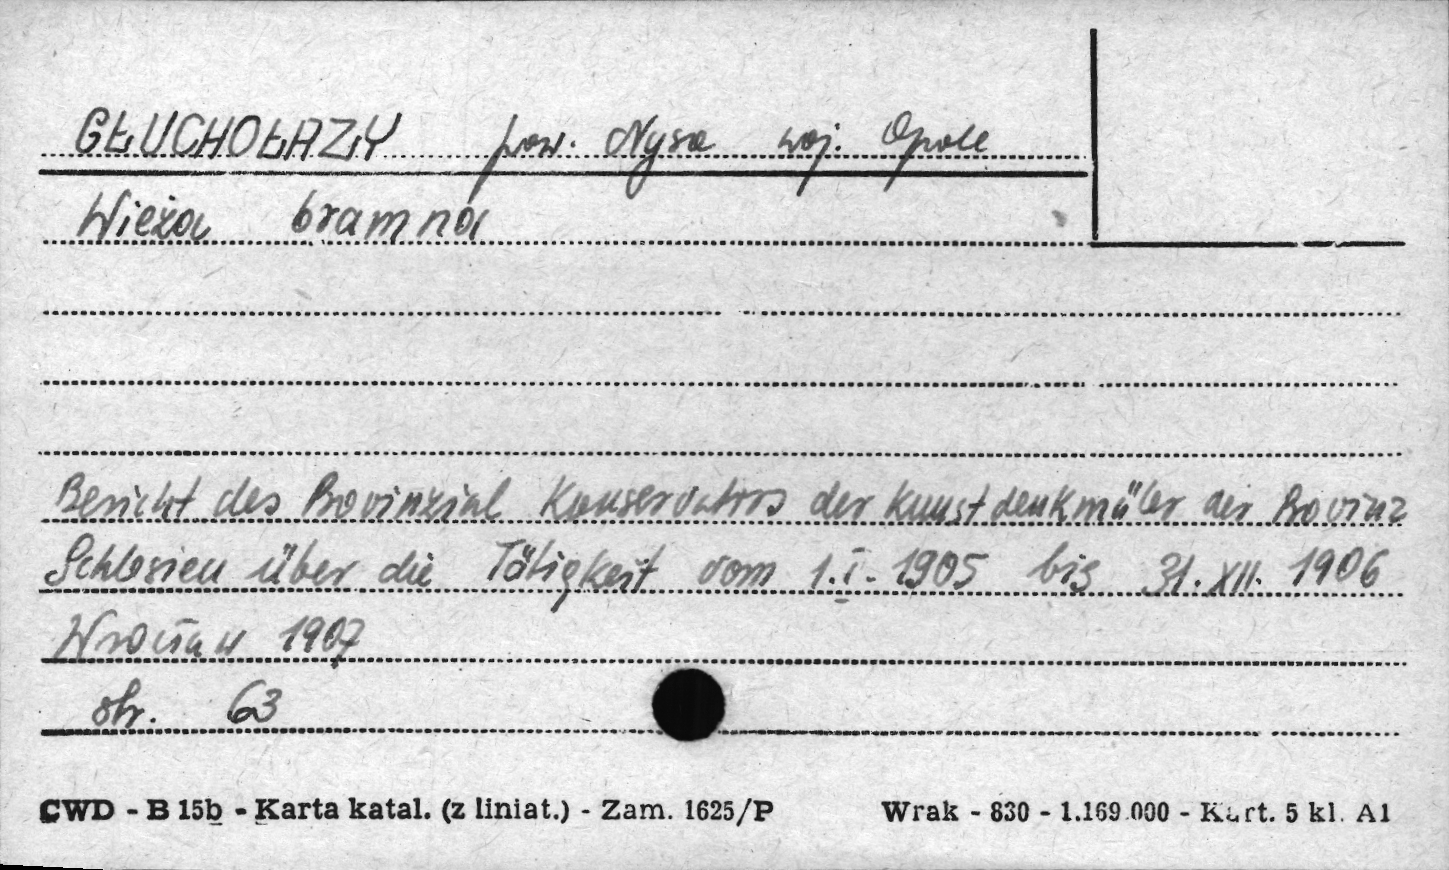 GŁUCHOŁAZY pow. Nysa woj. Opole
Wieża bramna
Bericht des Provinzial Konservators der Kunstdenkmäler der Provinz
Schlesien über die Tätigkeit vom 1.I. 1905 bis 31. XII. 1906
Wrocław 1907
str. 63
CWD - B 15b - Karta katal. (z liniat.) - Zam. 1625/P Wrak - 830 - 1.169.000 - Kart. 5 kl. A1